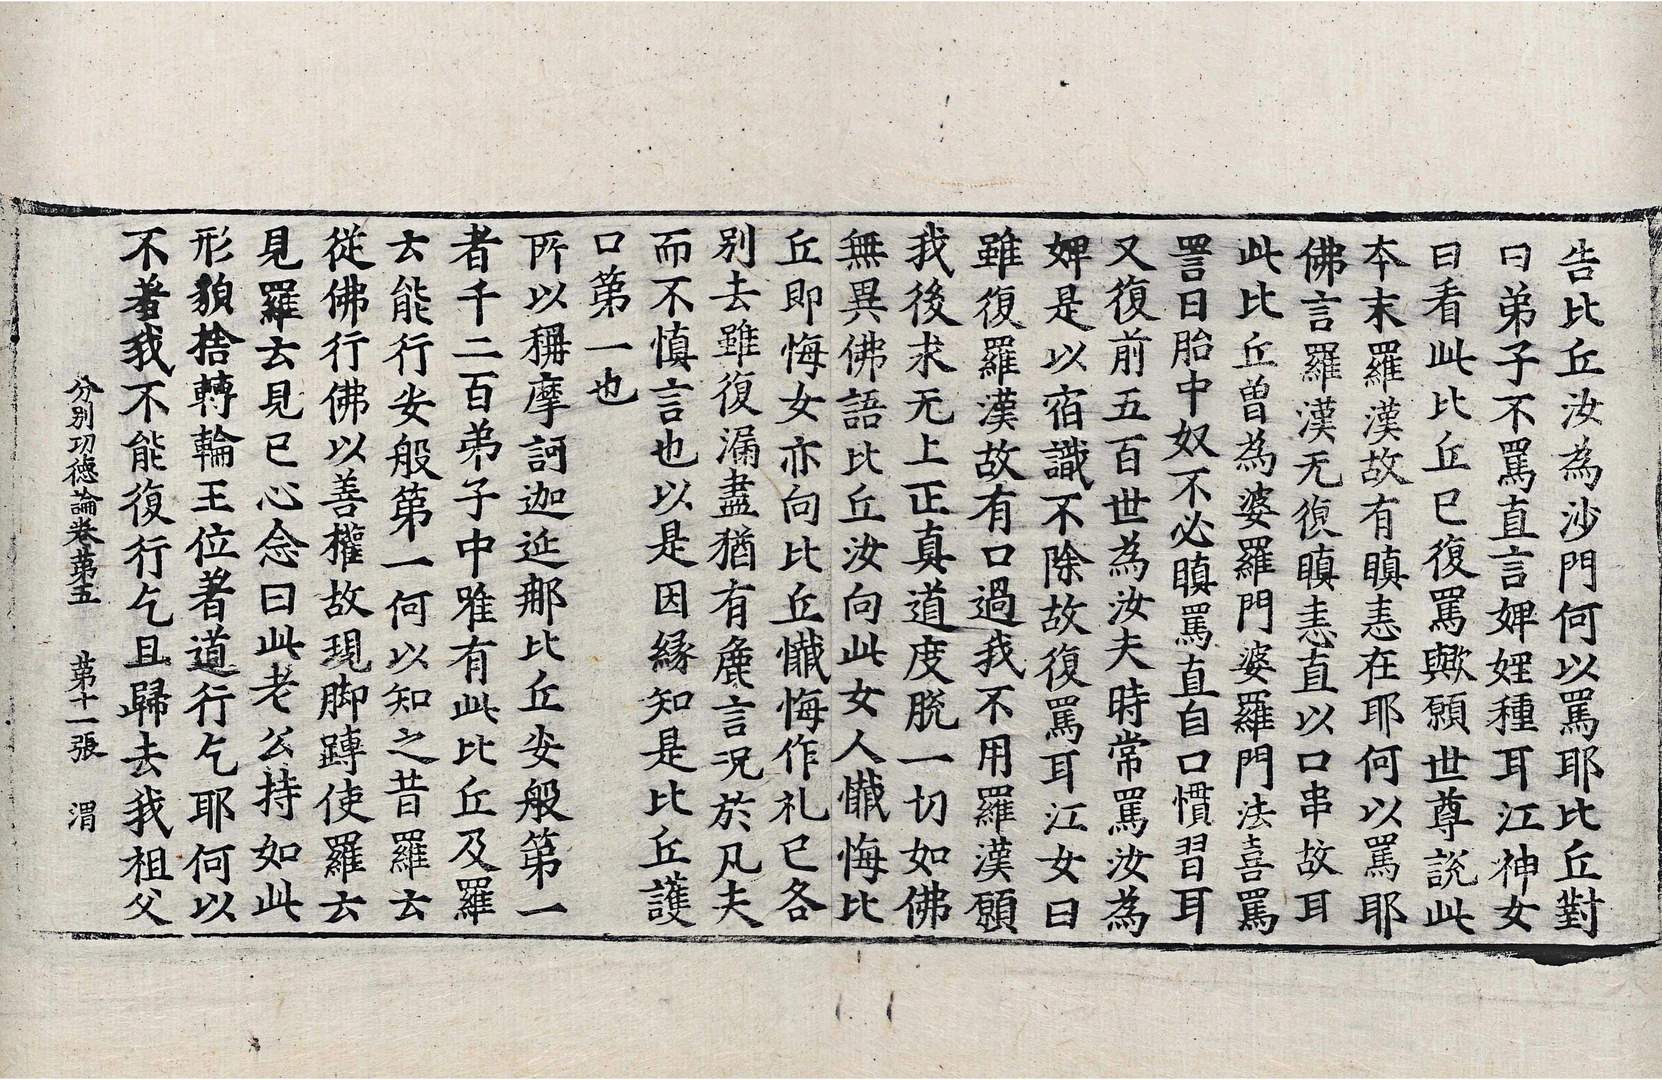 告比丘汝為沙門何以罵耶比丘對
曰弟子不罵直言婢婬種耳江神女
曰看此比丘已復罵歟願世尊説此
夲末羅漢故有瞋恚在耶何以罵耶
佛言羅漢无復瞋恚直以口串故耳
此比丘曽為婆羅門婆羅門法喜罵
詈曰胎中奴不必瞋罵直自口慣習耳
又復前五百世為汝夫時常罵汝為
婢是以宿識不除故復罵耳江女曰
雖復羅漢故有口過我不用羅漢願
我後求无上正真道度脱一切如佛
無異佛語比丘汝向此女人懺悔比
丘即悔女亦向比丘懺悔作礼已各
别去雖復漏盡猶有麁言况於凡夫
而不慎言也以是因縁知是比丘護
口第一也
所以稱摩訶迦延那比丘安般第一
者千二百弟子中唯有此比丘及羅
云能行安般第一何以知之昔羅云
從佛行佛以善權故現脚蹲使羅云
見羅云見已心念曰此老公持如此
形貌捨轉輪王位著道行乞耶何以
不著我不能復行乞且歸去我祖父
分别功德論卷第五 第十一張 渭